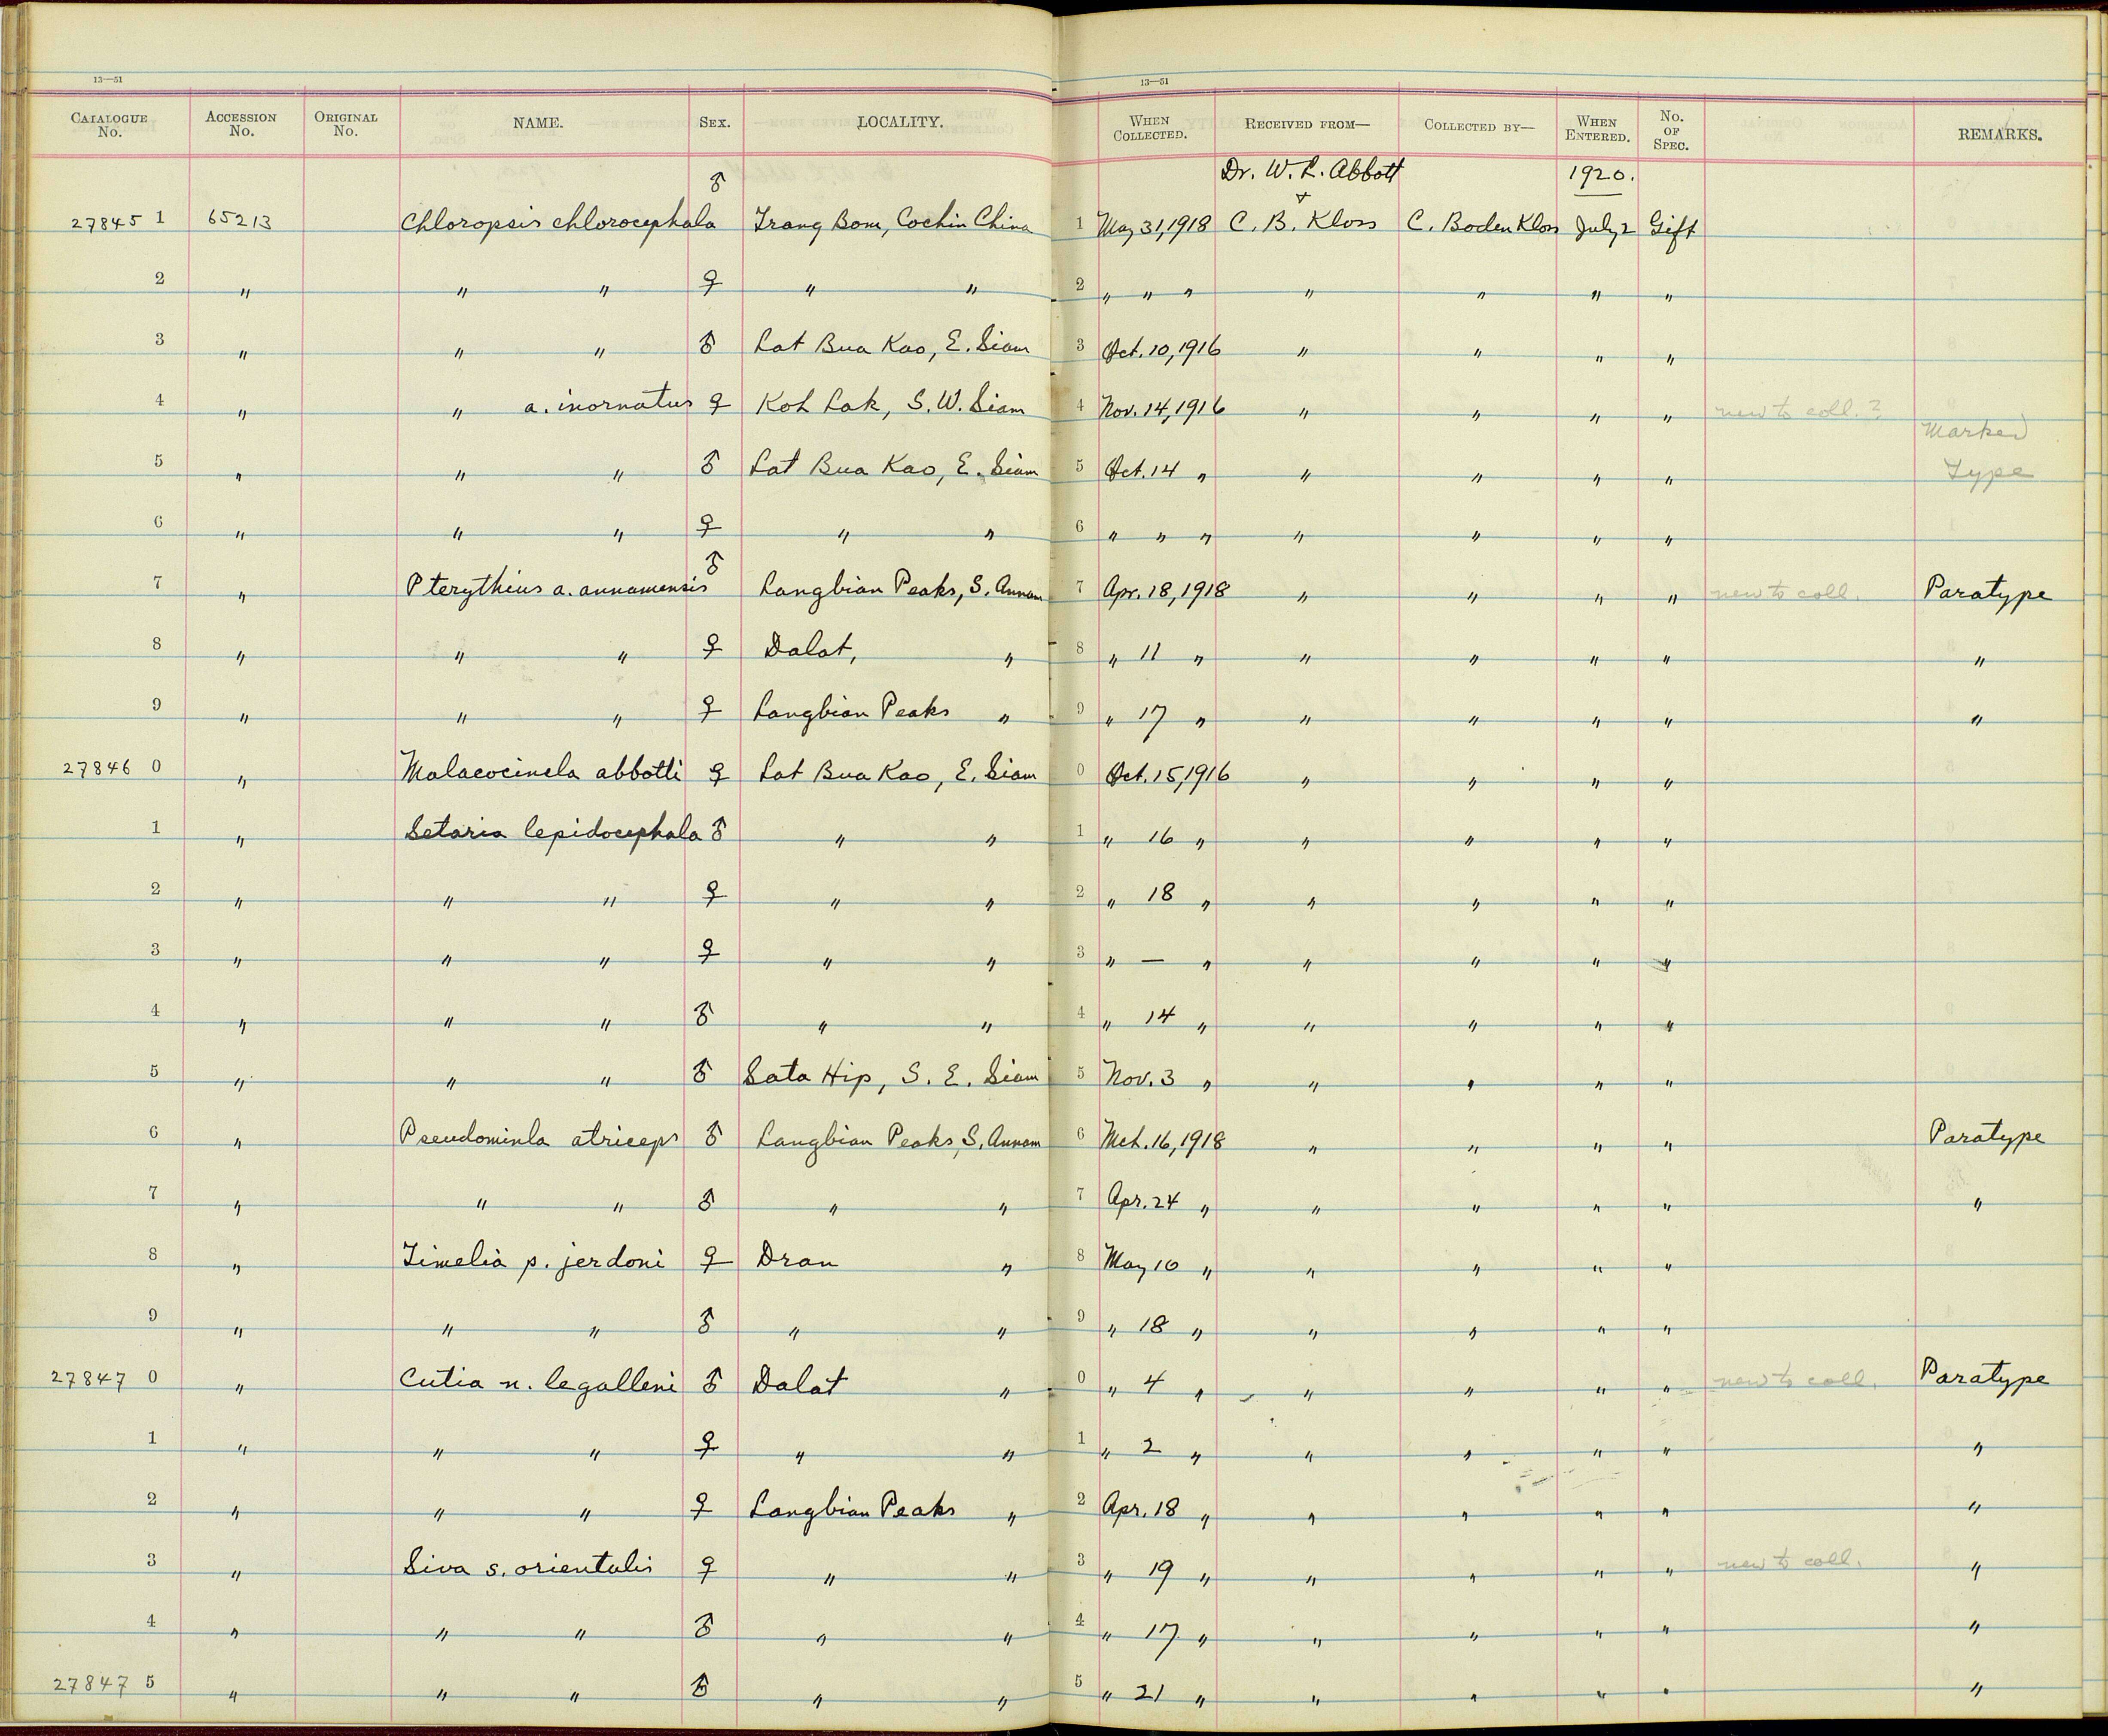 13—51 13—51
CATALOGUE No. ACCESSION No. ORIGINAL No. NAME. SEX. LOCALITY. WHEN COLLECTED. RECEIVED FROM— COLLECTED BY— WHEN ENTERED. No. OF SPEC. REMARKS.
Dr. W. L. Abbott 1920.
27845 1 65213 Chloropsis chlorocephala ♂ Trang Bom, Cochin China 1 May 31, 1918 + C. B. Kloss C. Boden Kloss July 2 Gift
2 " " " ♀ " " 2 " " " " " " "
3 " " " ♂ Lat Bua Kao, E. Siam 3 Oct. 10, 1916 " " " "
4 " " a. inornatus ♀ Koh Lak, S. W. Siam 4 Nov. 14, 1916 " " " " new to coll. ?
Marked
5 " " " ♂ Lat Bua Kao, E. Siam 5 Oct. 14 " " " " " Type
6 " " " ♀ " " 6 " " " " " " "
7 " Pterythius a. annamensis ♂ Langbian Peaks, S. Annam 7 Apr. 18, 1918 " " " " new to coll. Paratype
8 " " " ♀ Dalat, " 8 " 11 " " " " " "
9 " " " ♀ Langbian Peaks " 9 " 17 " " " " " "
27846 0 " Malacocincla abbotti ♀ Lat Bua Kao, E. Siam 0 Oct. 15, 1916 " " " "
1 " Setaria lepidocephala ♂ " " 1 " 16 " " " " "
2 " " " ♀ " " 2 " 18 " " " " "
3 " " " ♀ " " 3 " — " " " " "
4 " " " ♂ " " 4 " 14 " " " " "
5 " " " ♂ Sata Hip, S. E. Siam 5 Nov. 3 " " " " "
6 " Pseudominla atriceps ♂ Langbian Peaks, S. Annam 6 Mch. 16, 1918 " " " " Paratype
7 " " " ♂ " " 7 Apr. 24 " " " " " "
8 " Timelia p. jerdoni ♀ Dran " 8 May 10 " " " " "
9 " " " ♂ " " 9 " 18 " " " " "
27847 0 " Cutia n. legalleni ♂ Dalat " 0 " 4 " " " " " new to coll. Paratype
1 " " " ♀ " " 1 " 2 " " " " " "
2 " " " ♀ Langbian Peaks " 2 Apr. 18 " " " " " "
3 " Siva s. orientalis ♀ " " 3 " 19 " " " " " new to coll. "
4 " " " ♂ " " 4 " 17 " " " " " "
27847 5 " " " ♂ " " 5 " 21 " " " " " "